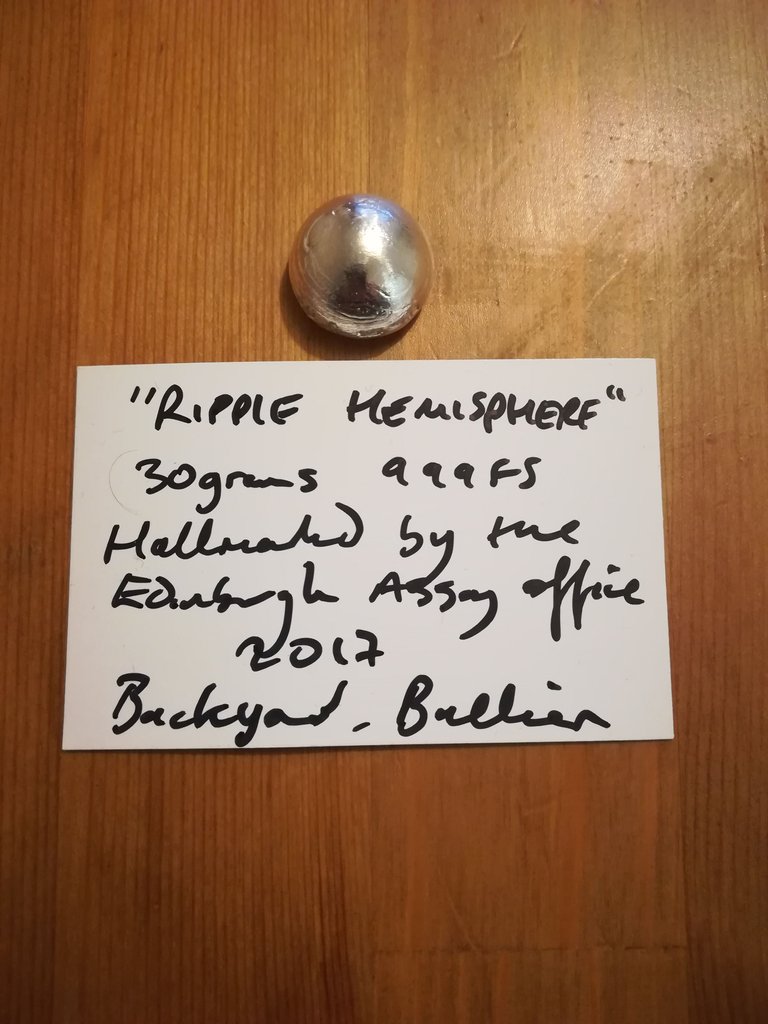 "RIPPLE HEMISPHERE"
30grams 999FS
Hallmarked by the
Edinburgh Assay office
2017
Backyard_Bullion